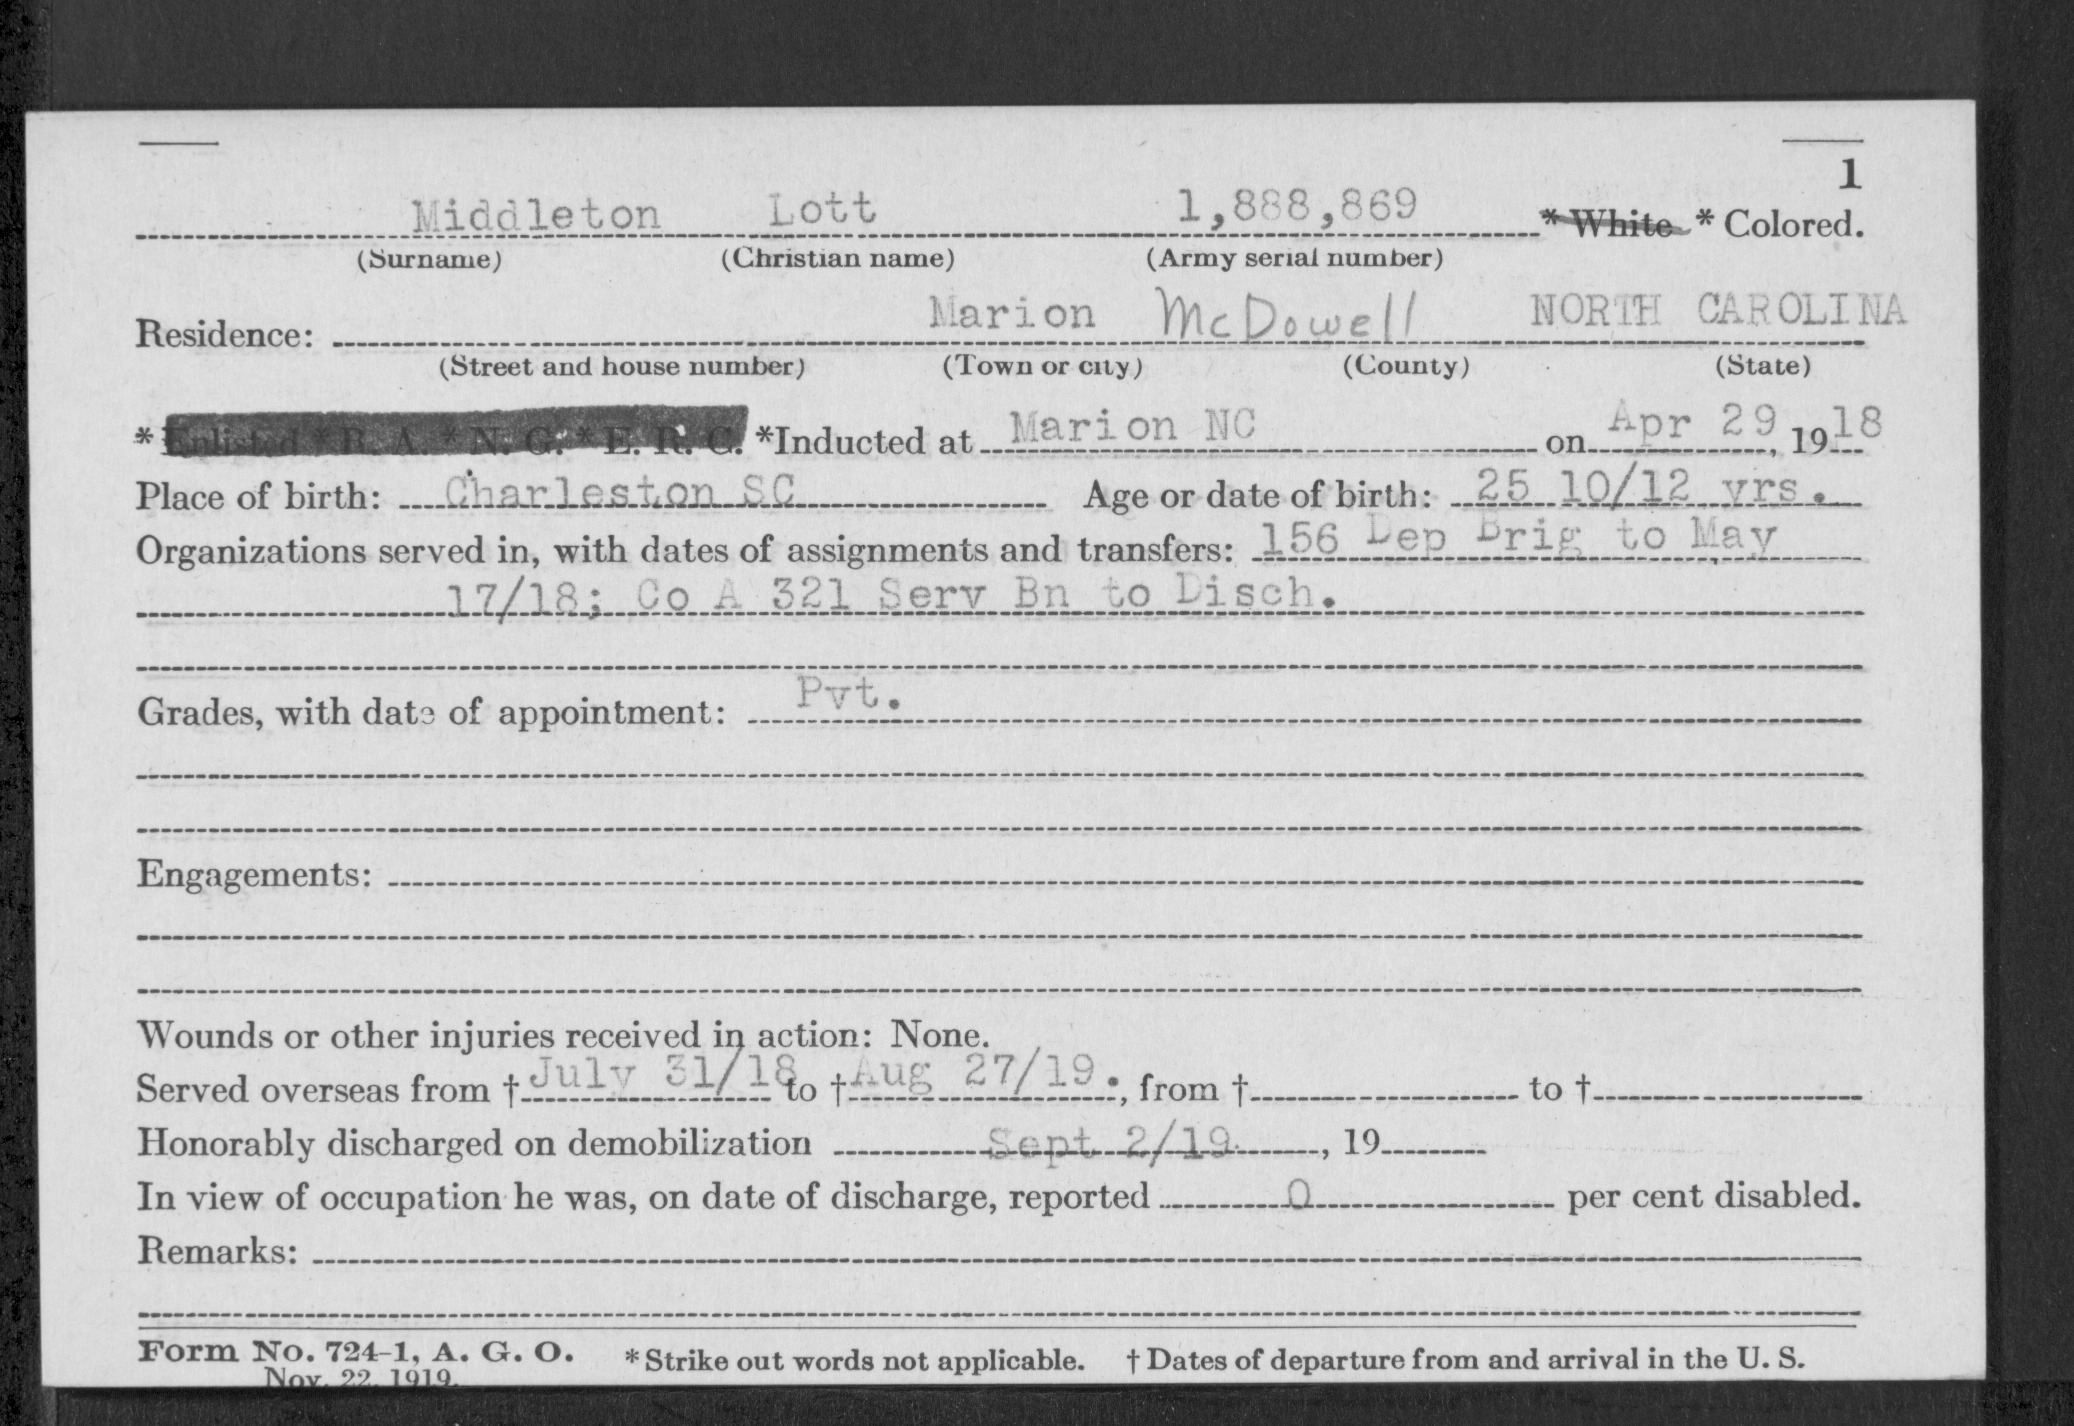 1
Middleton Lott 1,888,869 * White * Colored.
(Surname) (Christian name) (Army serial number)
Residence: Marion McDowell NORTH CAROLINA
(Street and house number) (Town or city) (County) (State)
* Enlisted * R. A. * N. G. * E. R. C. *Inducted at Marion NC on Apr 29, 1918
Place of birth: Charleston SC Age or date of birth: 25 10/12 yrs.
Organizations served in, with dates of assignments and transfers: 156 Dep Brig to May
17/18; Co A 321 Serv Bn to Disch.
Grades, with date of appointment: Pvt.
Engagements:
Wounds or other injuries received in action: None.
Served overseas from † July 31/18 to † Aug 27/19., from † to †
Honorably discharged on demobilization Sept 2/19, 19
In view of occupation he was, on date of discharge, reported 0 per cent disabled.
Remarks:
Form No. 724-1, A. G. O. * Strike out words not applicable. † Dates of departure from and arrival in the U. S.
Nov. 22, 1919.